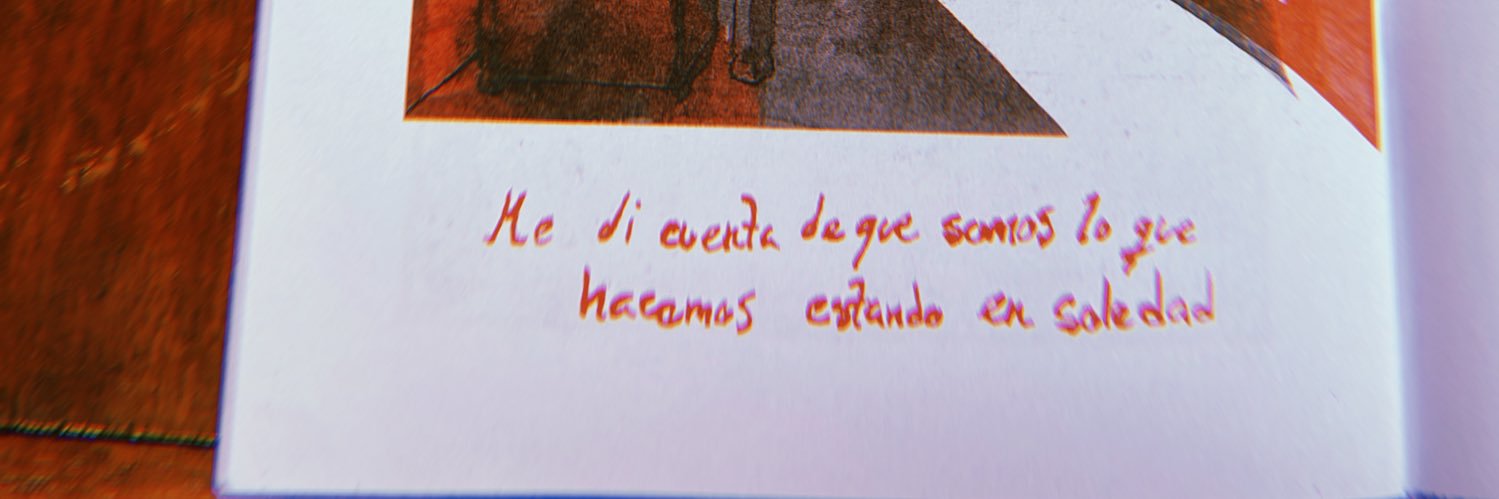 Me di cuenta de que somos lo que
hacemos estando en soledad